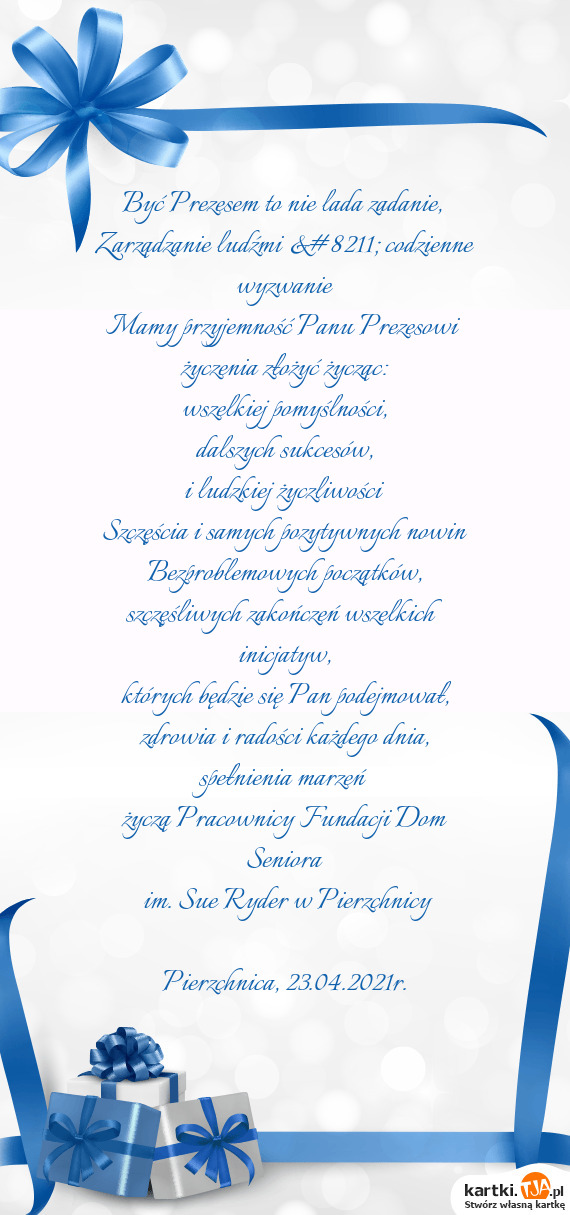 Być Prezesem to nie lada zadanie,
Zarządzanie ludźmi &#8211; codzienne
wyzwanie
Mamy przyjemność Panu Prezesowi
życzenia złożyć życząc:
wszelkiej pomyślności,
dalszych sukcesów,
i ludzkiej życzliwości
Szczęścia i samych pozytywnych nowin
Bezproblemowych początków,
szczęśliwych zakończeń wszelkich
inicjatyw,
których będzie się Pan podejmował,
zdrowia i radości każdego dnia,
spełnienia marzeń
życzą Pracownicy Fundacji Dom
Seniora
im. Sue Ryder w Pierzchnicy
Pierzchnica, 23.04.2021r.
kartki.TJA.pl
Stwórz własną kartkę